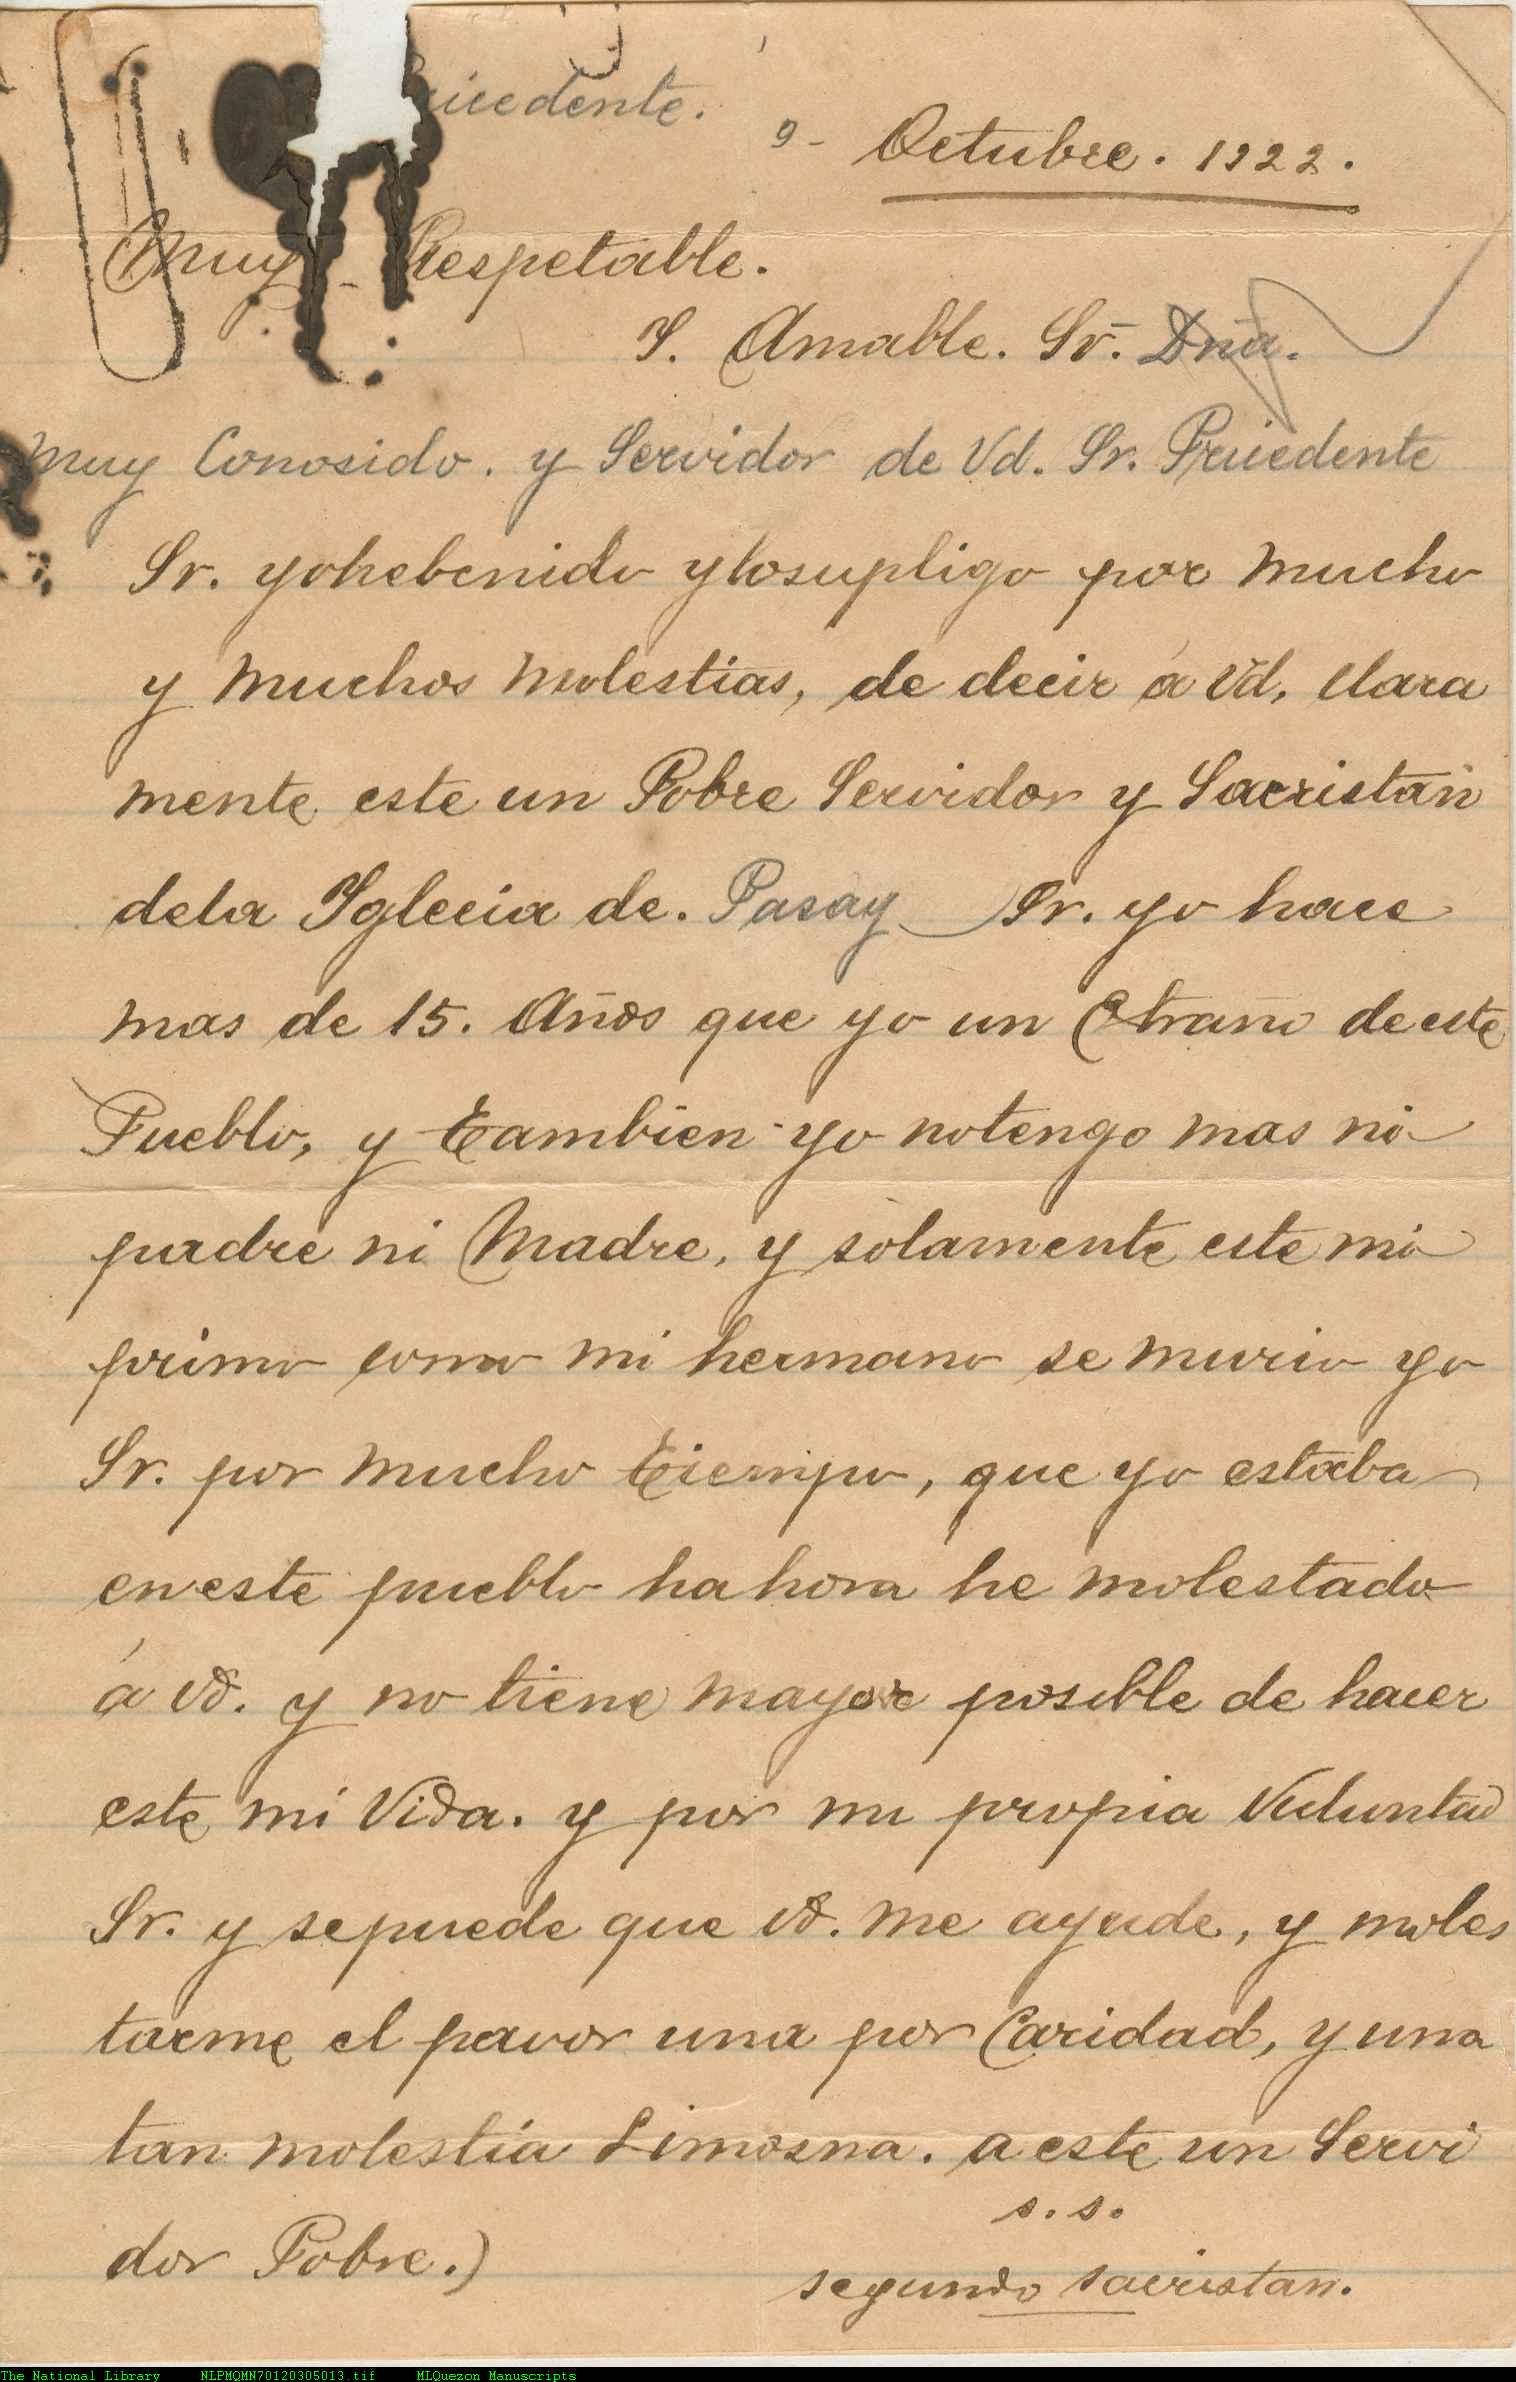 icedente.
9- Octubre. 1922.
Muy Respetable.
Y. Amable. Sr. Dña.
Muy Conosido. y Servidor de Vd. Sr. Pricedente
Sr. yohebenido ylosupligo por mucho
y muchos molestias, de decir á Vd, clara
mente este un Pobre Servidor y Sacristan
dela Yglecia de. Pasay Sr. yo hace
mas de 15. Años que yo un Otraño de este
Pueblo, y tambien yo notengo mas ni
padre ni Madre, y solamente este mi
primo como mi hermano se murio yo
Sr. por mucho tiempo, que yo estaba
en este pueblo hahora he molestado
á Vd. y no tiene mayor posible de hacer
este mi Vida. y por mi propia Voluntad
Sr. y sepuede que Vd. me ayude, y moles
tarme el pavor una por Caridad, y una
tan molestia Limosna. a este un Servi
s. s.
dor Pobre.)
segundo sacristan.
The National Library NLPMQMN70120305013.tif MLQuezon Manuscripts